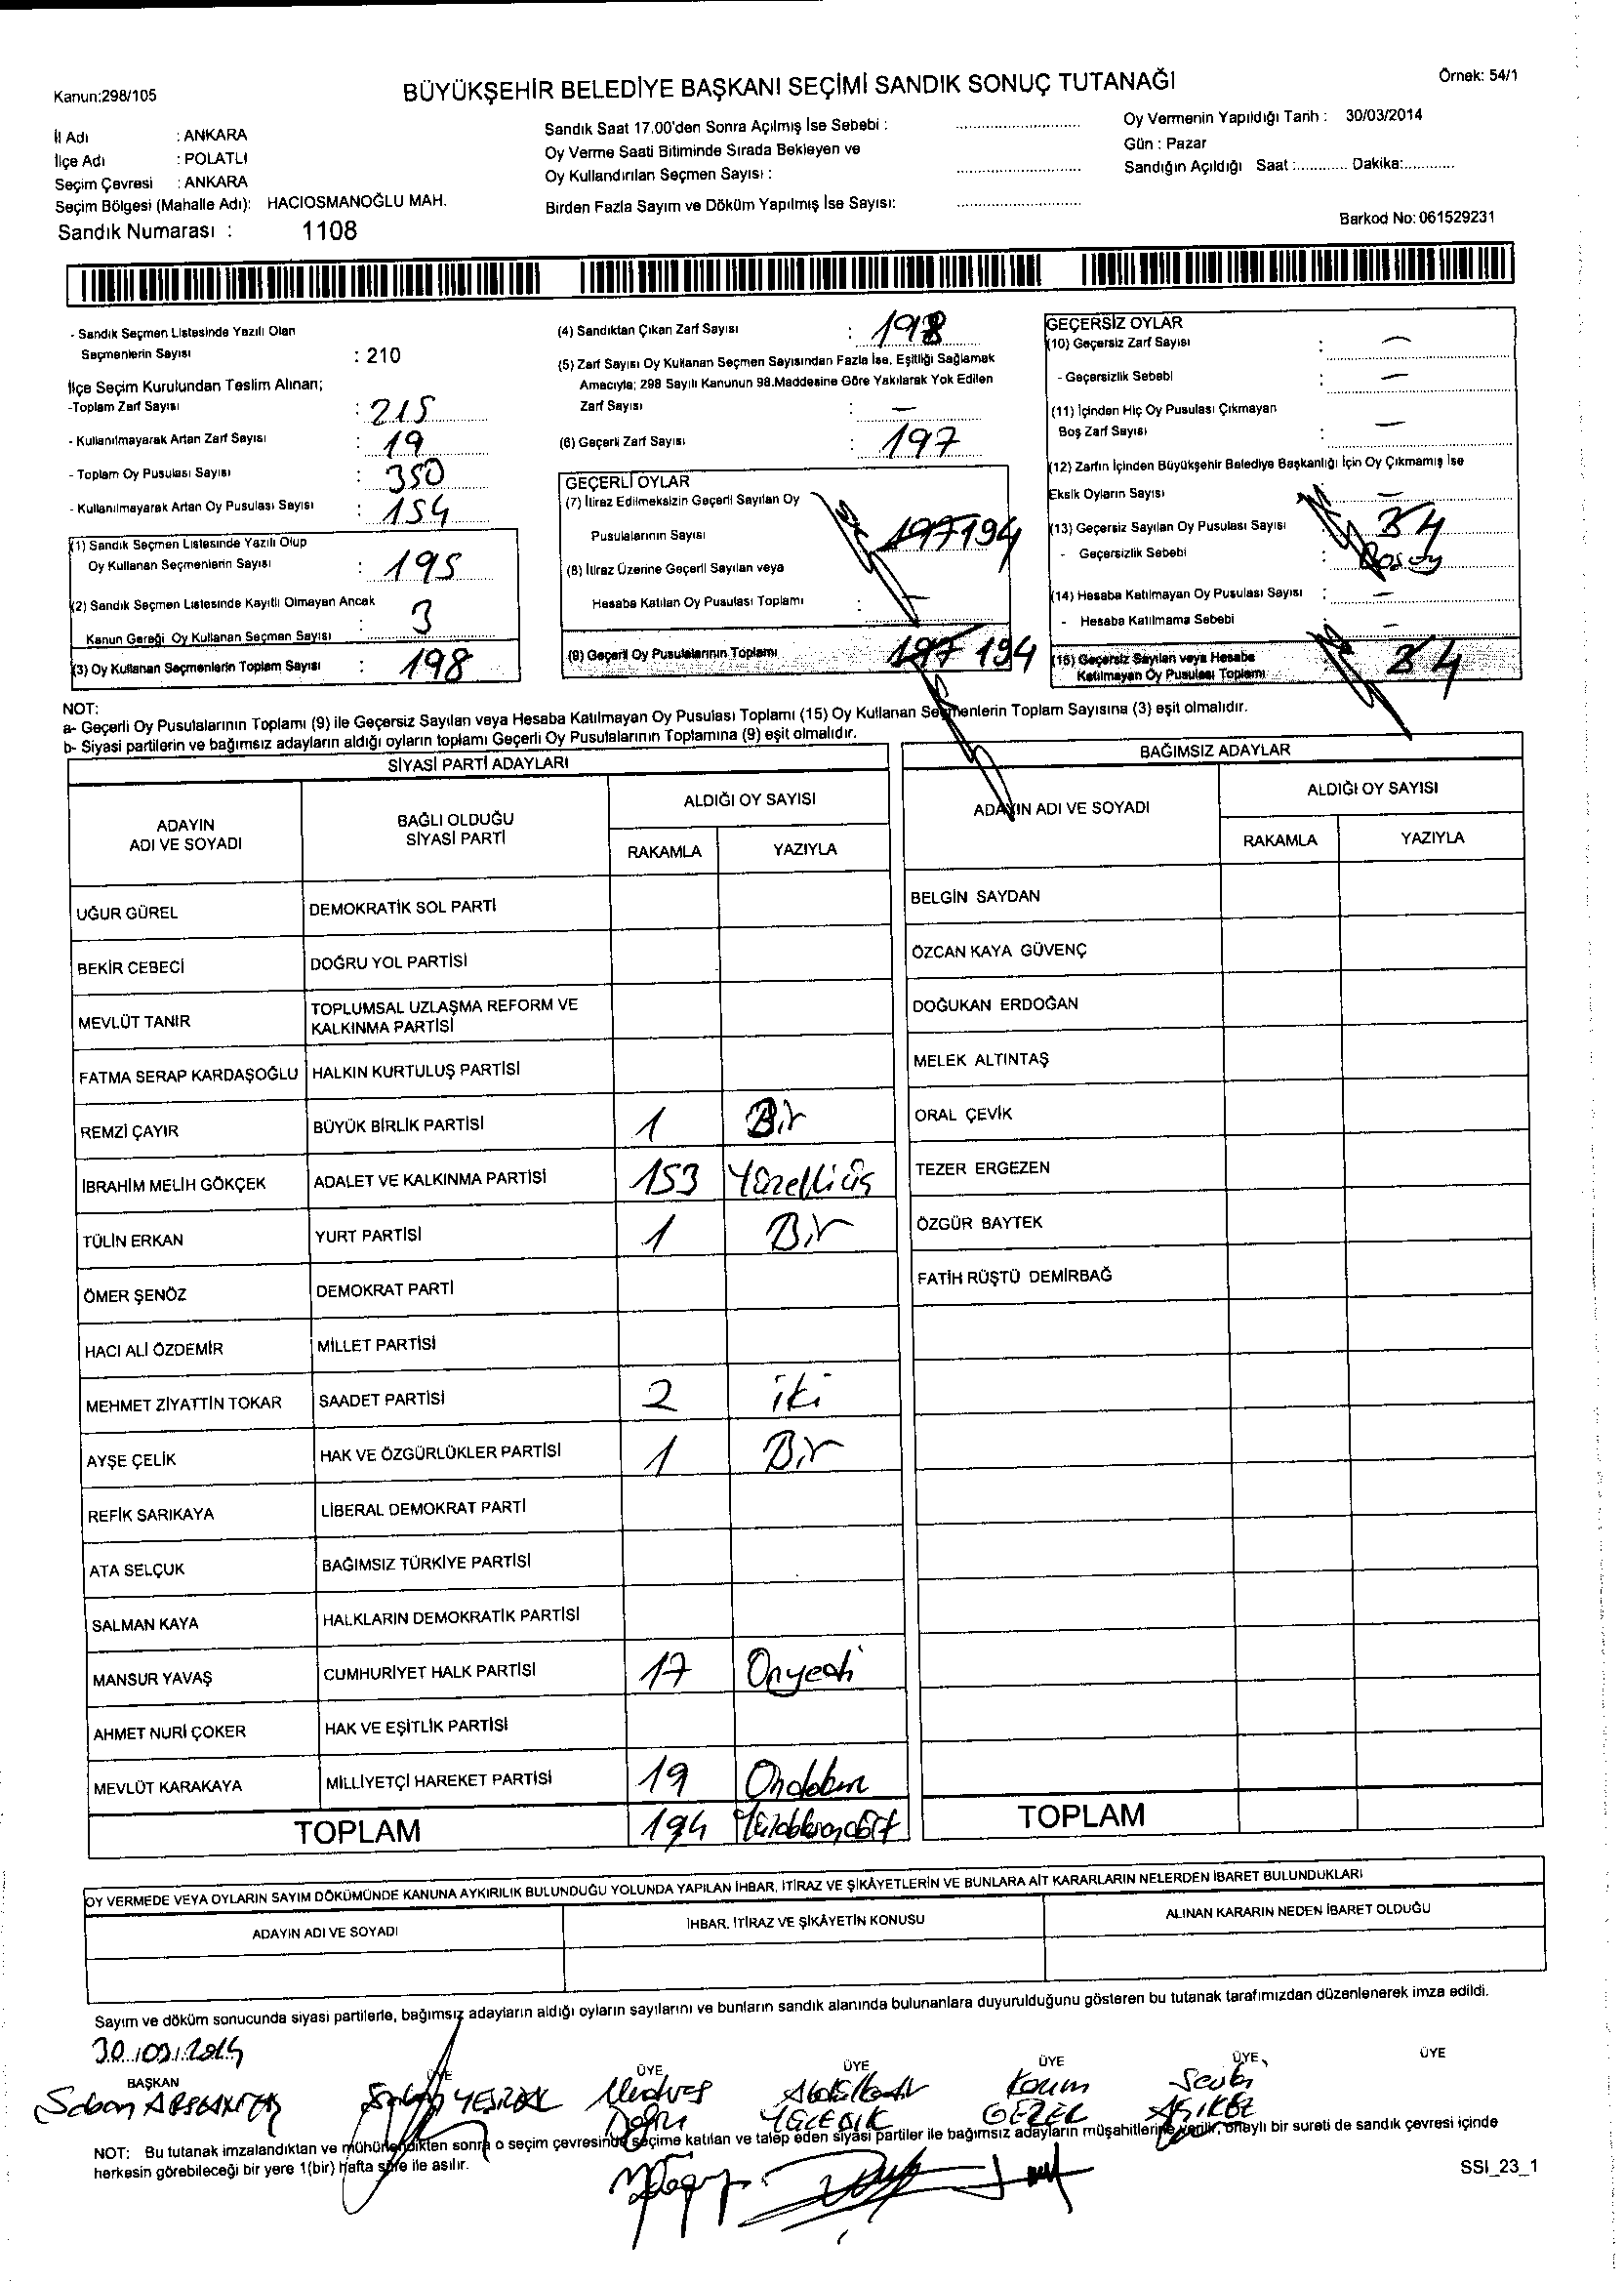 Kanun:298/105
BÜYÜKŞEHİR BELEDİYE BAŞKANI SEÇİMİ SANDIK SONUÇ TUTANAĞI
Örnek: 54/1
İl Adı : ANKARA
İlçe Adı : POLATLI
Seçim Çevresi : ANKARA
Seçim Bölgesi (Mahalle Adı): HACIOSMANOĞLU MAH.
Sandık Numarası : 1108
Sandık Saat 17.00'den Sonra Açılmış İse Sebebi :
Oy Verme Saati Bitiminde Sırada Bekleyen ve
Oy Kullandırılan Seçmen Sayısı :
Birden Fazla Sayım ve Döküm Yapılmış İse Sayısı:
Oy Vermenin Yapıldığı Tarih : 30/03/2014
Gün : Pazar
Sandığın Açıldığı Saat :............ Dakika:............
Barkod No: 061529231
- Sandık Seçmen Listesinde Yazılı Olan
Seçmenlerin Sayısı : 210
İlçe Seçim Kurulundan Teslim Alınan;
-Toplam Zarf Sayısı : 215
- Kullanılmayarak Artan Zarf Sayısı : 19
- Toplam Oy Pusulası Sayısı : 350
- Kullanılmayarak Artan Oy Pusulası Sayısı : 154
(1) Sandık Seçmen Listesinde Yazılı Olup
Oy Kullanan Seçmenlerin Sayısı : 195
(2) Sandık Seçmen Listesinde Kayıtlı Olmayan Ancak
Kanun Gereği Oy Kullanan Seçmen Sayısı : 3
(3) Oy Kullanan Seçmenlerin Toplam Sayısı : 198
(4) Sandıktan Çıkan Zarf Sayısı : 198
(5) Zarf Sayısı Oy Kullanan Seçmen Sayısından Fazla İse, Eşitliği Sağlamak
Amacıyla; 298 Sayılı Kanunun 98.Maddesine Göre Yakılarak Yok Edilen
Zarf Sayısı : —
(6) Geçerli Zarf Sayısı : 197
GEÇERLİ OYLAR
(7) İtiraz Edilmeksizin Geçerli Sayılan Oy
Pusulalarının Sayısı 197 194
(8) İtiraz Üzerine Geçerli Sayılan veya
Hesaba Katılan Oy Pusulası Toplamı : —
(9) Geçerli Oy Pusulalarının Toplamı 197 194
GEÇERSİZ OYLAR
(10) Geçersiz Zarf Sayısı : —
- Geçersizlik Sebebi : —
(11) İçinden Hiç Oy Pusulası Çıkmayan
Boş Zarf Sayısı : —
(12) Zarfın İçinden Büyükşehir Belediye Başkanlığı İçin Oy Çıkmamış İse
Eksik Oyların Sayısı : —
(13) Geçersiz Sayılan Oy Pusulası Sayısı 3 4
- Geçersizlik Sebebi : Boş oy
(14) Hesaba Katılmayan Oy Pusulası Sayısı : —
- Hesaba Katılmama Sebebi —
(15) Geçersiz Sayılan veya Hesaba
Katılmayan Oy Pusulası Toplamı 3 4
NOT:
a- Geçerli Oy Pusulalarının Toplamı (9) ile Geçersiz Sayılan veya Hesaba Katılmayan Oy Pusulası Toplamı (15) Oy Kullanan Seçmenlerin Toplam Sayısına (3) eşit olmalıdır.
b- Siyasi partilerin ve bağımsız adayların aldığı oyların toplamı Geçerli Oy Pusulalarının Toplamına (9) eşit olmalıdır.
SİYASİ PARTİ ADAYLARI
ADAYIN ADI VE SOYADI BAĞLI OLDUĞU SİYASİ PARTİ ALDIĞI OY SAYISI
RAKAMLA YAZIYLA
UĞUR GÜREL DEMOKRATİK SOL PARTİ
BEKİR CEBECİ DOĞRU YOL PARTİSİ
MEVLÜT TANIR TOPLUMSAL UZLAŞMA REFORM VE KALKINMA PARTİSİ
FATMA SERAP KARDAŞOĞLU HALKIN KURTULUŞ PARTİSİ
REMZİ ÇAYIR BÜYÜK BİRLİK PARTİSİ 1 Bir
İBRAHİM MELİH GÖKÇEK ADALET VE KALKINMA PARTİSİ 153 Yüzelliüç
TÜLİN ERKAN YURT PARTİSİ 1 Bir
ÖMER ŞENÖZ DEMOKRAT PARTİ
HACI ALİ ÖZDEMİR MİLLET PARTİSİ
MEHMET ZİYATTİN TOKAR SAADET PARTİSİ 2 iki
AYŞE ÇELİK HAK VE ÖZGÜRLÜKLER PARTİSİ 1 Bir
REFİK SARIKAYA LİBERAL DEMOKRAT PARTİ
ATA SELÇUK BAĞIMSIZ TÜRKİYE PARTİSİ
SALMAN KAYA HALKLARIN DEMOKRATİK PARTİSİ
MANSUR YAVAŞ CUMHURİYET HALK PARTİSİ 17 Onyedi
AHMET NURİ ÇOKER HAK VE EŞİTLİK PARTİSİ
MEVLÜT KARAKAYA MİLLİYETÇİ HAREKET PARTİSİ 19 Ondokuz
TOPLAM 194 Yüzdoksandört
BAĞIMSIZ ADAYLAR
ADAYIN ADI VE SOYADI ALDIĞI OY SAYISI
RAKAMLA YAZIYLA
BELGİN SAYDAN
ÖZCAN KAYA GÜVENÇ
DOĞUKAN ERDOĞAN
MELEK ALTINTAŞ
ORAL ÇEVİK
TEZER ERGEZEN
ÖZGÜR BAYTEK
FATİH RÜŞTÜ DEMİRBAĞ
TOPLAM
OY VERMEDE VEYA OYLARIN SAYIM DÖKÜMÜNDE KANUNA AYKIRILIK BULUNDUĞU YOLUNDA YAPILAN İHBAR, İTİRAZ VE ŞİKÂYETLERİN VE BUNLARA AİT KARARLARIN NELERDEN İBARET BULUNDUKLARI
ADAYIN ADI VE SOYADI İHBAR, İTİRAZ VE ŞİKÂYETİN KONUSU ALINAN KARARIN NEDEN İBARET OLDUĞU
Sayım ve döküm sonucunda siyasi partilerle, bağımsız adayların aldığı oyların sayılarını ve bunların sandık alanında bulunanlara duyurulduğunu gösteren bu tutanak tarafımızdan düzenlenerek imza edildi.
30.03.2014
BAŞKAN ÜYE ÜYE ÜYE ÜYE ÜYE ÜYE
Doğru
GEZEL
NOT: Bu tutanak imzalandıktan ve mühürlendikten sonra o seçim çevresinde seçime katılan ve talep eden siyasi partiler ile bağımsız adayların müşahitlerine verilir, onaylı bir sureti de sandık çevresi içinde
herkesin görebileceği bir yere 1(bir) hafta süre ile asılır.
SSI_23_1